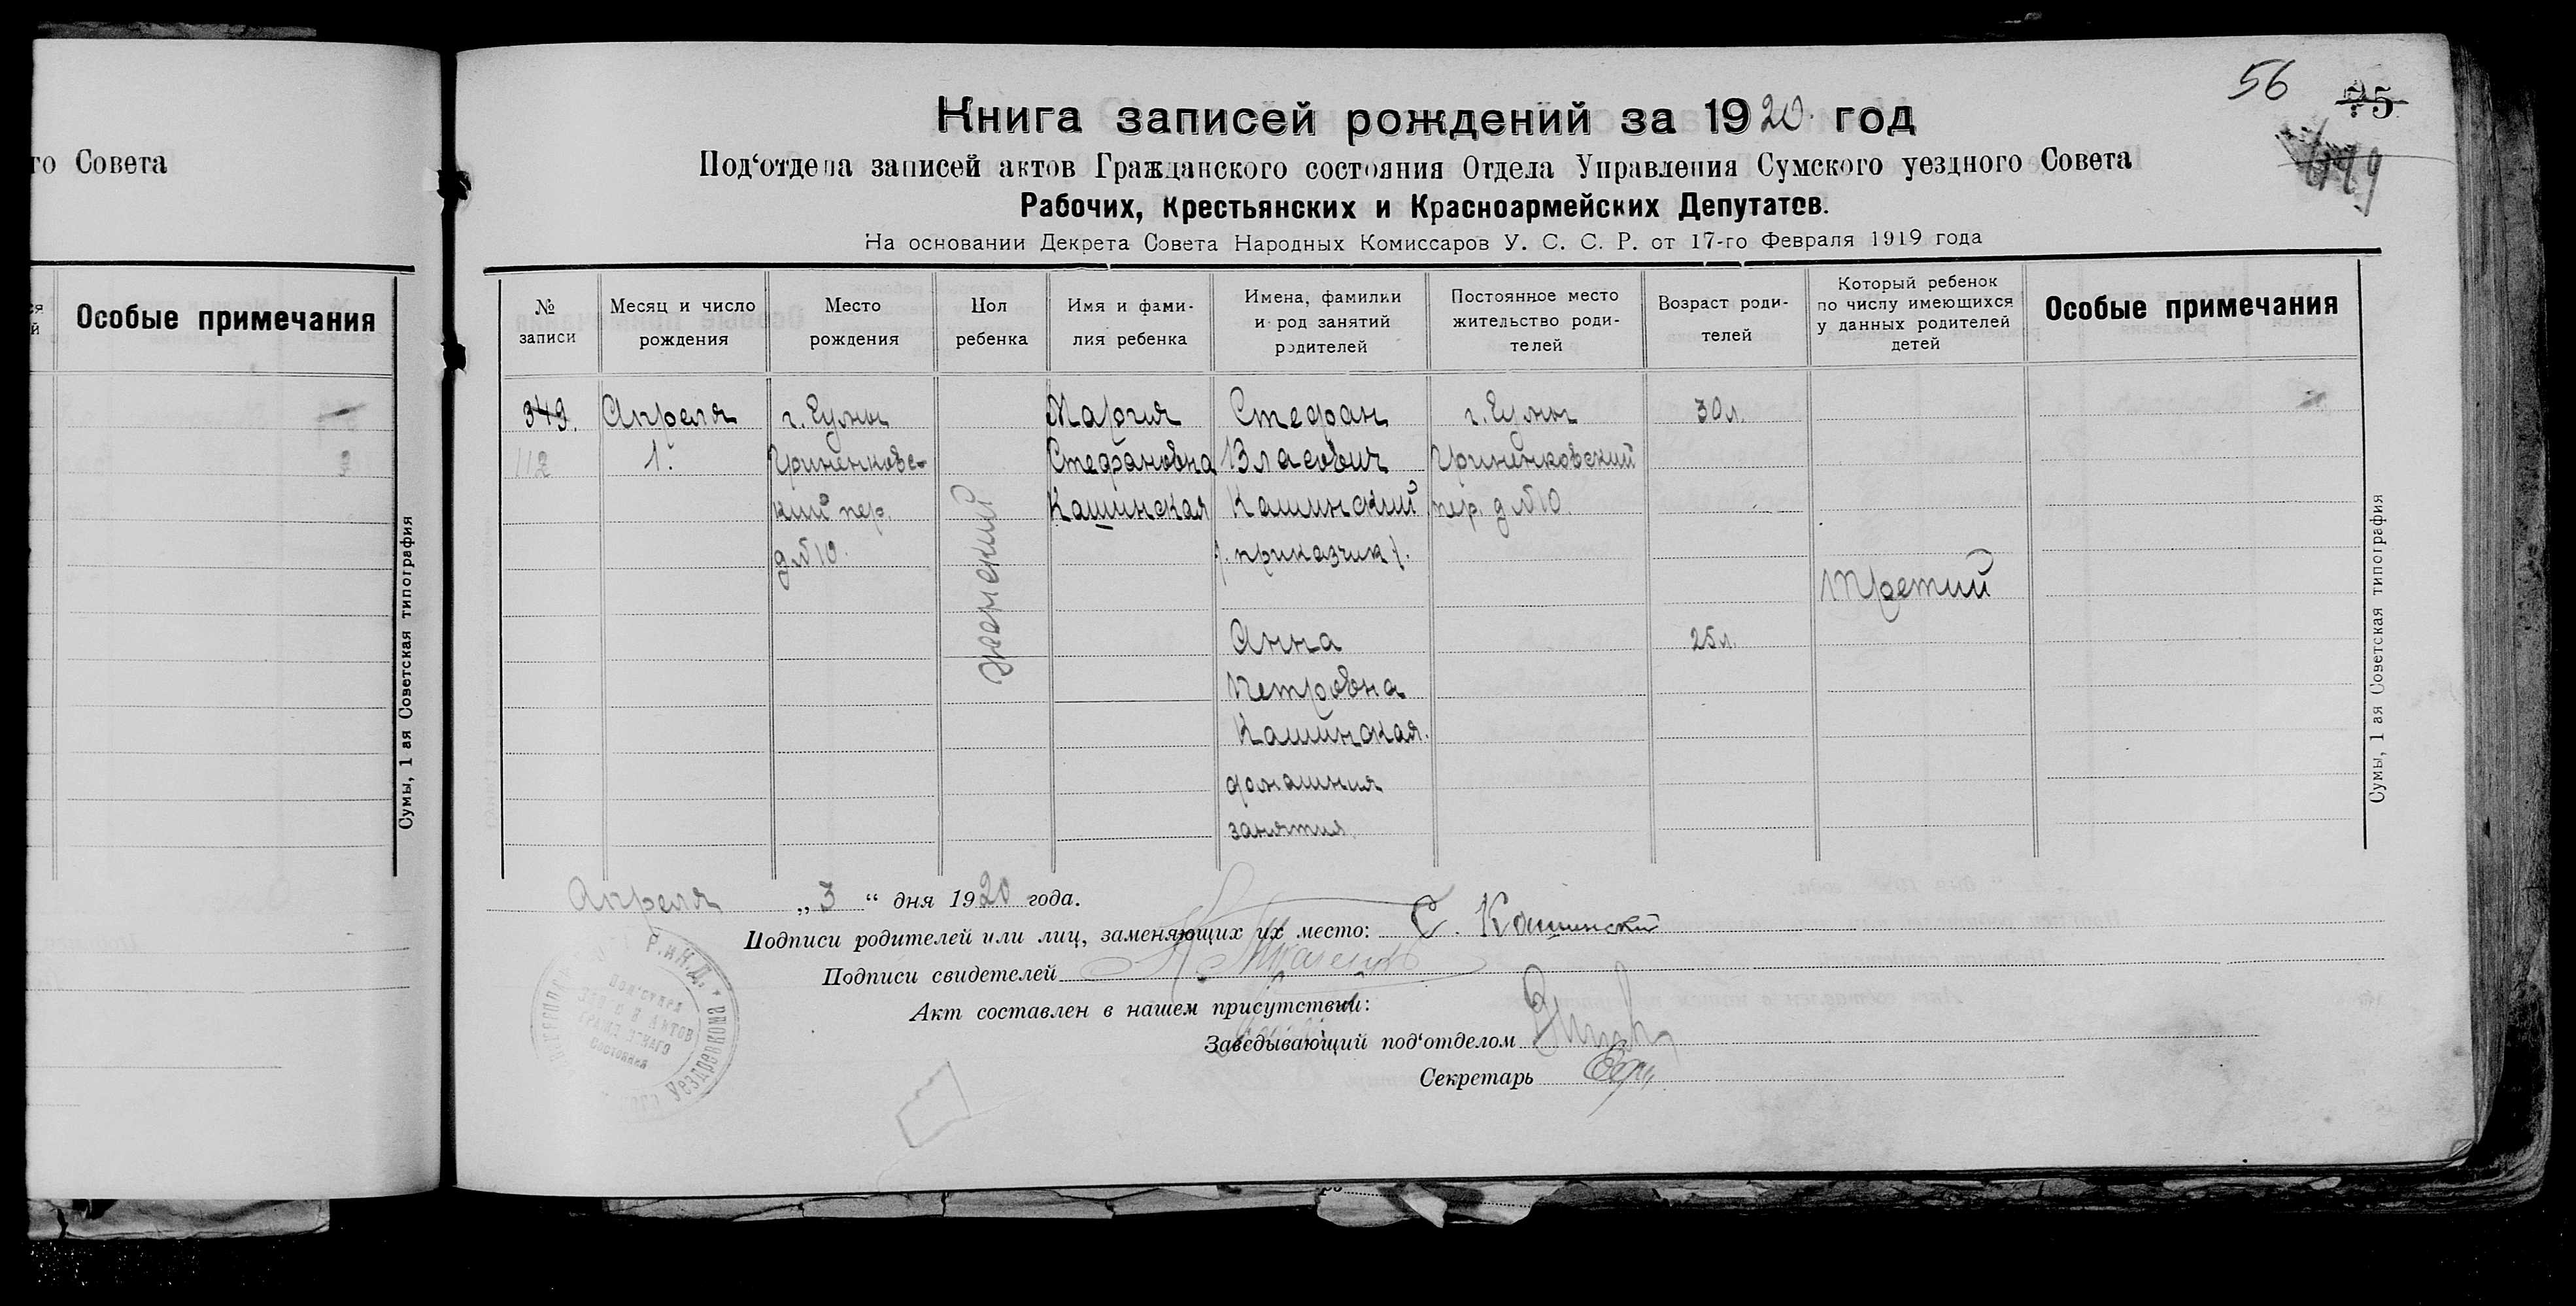 го Совета
Особые примечания
Сумы, 1 ая Советская типография
56
75
Книга записей рождений за 1920 год
Под‘отдела записей актов Гражданского состояния Отдела Управления Сумского уездного Совета
Рабочих, Крестьянских и Красноармейских Депутатов.
На основании Декрета Совета Народных Комиссаров У. С. С. Р. от 17-го Февраля 1919 года
№ записи
Месяц и число рождения
Место рождения
Пол ребенка
Имя и фами-
лия ребенка
Имена, фамилии
и род занятий
родителей
Постоянное место
жительство роди-
телей
Возраст роди-
телей
Который ребенок
по числу имеющихся
у данных родителей
детей
Особые примечания
349.
112
Апреля
1.
г. Сумы
Гриненковс-
кий пер.
д №10.
женский
Мария
Стефановна
Кашинская
Стефан
Власович
Кашинский
/. приказчик /.
Анна
Петровна
Кашинская.
домашния
занятия.
г. Сумы
Гриненковский
пер. д №10.
30 л.
25 л.
Третий
Сумы, 1 ая Советская типография
Апреля „3“ дня 1920 года.
Подписи родителей или лиц, заменяющих их место: С. Кашинский
Подписи свидетелей
Акт составлен в нашем присутствии:
Заведывающий под‘отделом
Секретарь
Под‘отдел
Актов
Состояния
Уездревкома